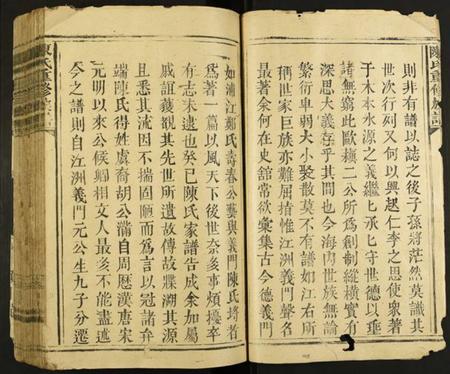 陳氏重修族譜
則非有譜以誌之後子孫將茫然莫識其
世次行列又何以興起仁孝之思使衆著
于木本水源之義繼繼承承七守世德以垂
諸無窮此歐蘇二公所為創制縱橫實有
深思大義存乎其間也今海内世族無論
繁衍單弱大小聚散莫不有譜如江右所
稱世家巨族亦難屈指惟江洲義門聲名
最著余何在史舘常欲彙集古今德義門
如浦江鄭氏壽春公藝與義門陳氏將者
為著一篇以風天下後世奈多事煩擾卒
有志未逮也癸巳陳氏家譜告成余加屬
戚誼獲觀其先世所遺故傳故牒溯其源
且悉其流因不揣固陋而為言以冠諸弁
端陳氏得姓虞裔胡公滿自周歷漢唐宋
元明以來公侯卿相文人最多不能盡述
今之譜則自江洲義門元公生九子分遷
陳氏重修族譜